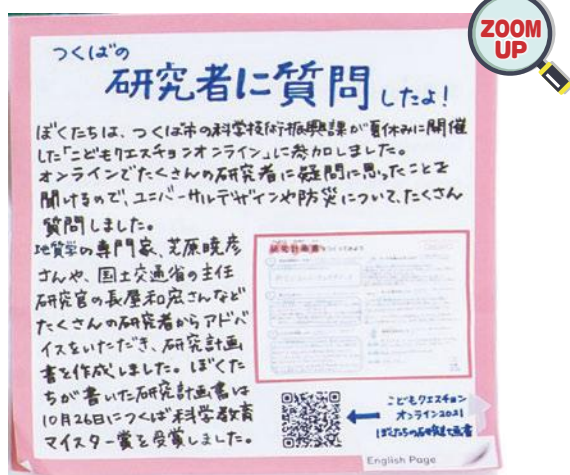 ZOOM
UP
つくばの
研究者に質問したよ!
ぼくたちは、つくば市の科学技術振興課が夏休みに開催
した「こどもクエスチョンオンライン」に参加しました。
オンラインでたくさんの研究者に疑問に思ったことを
聞けるので、ユニバーサルデザインや防災について、たくさん
質問しました。
地質学の専門家、芝原暁彦
さんや、国土交通省の主任
研究官の長屋和宏さんなど
たくさんの研究者からアドバ
イスをいただき、研究計画
書を作成しました。ぼくた
ちが書いた研究計画書は
10月26日につくば科学教育
マイスター賞を受賞しました。
研究計画書をつくってみよう
こどもクエスチョン
オンライン2021
ぼくたちの研究計画書
English Page